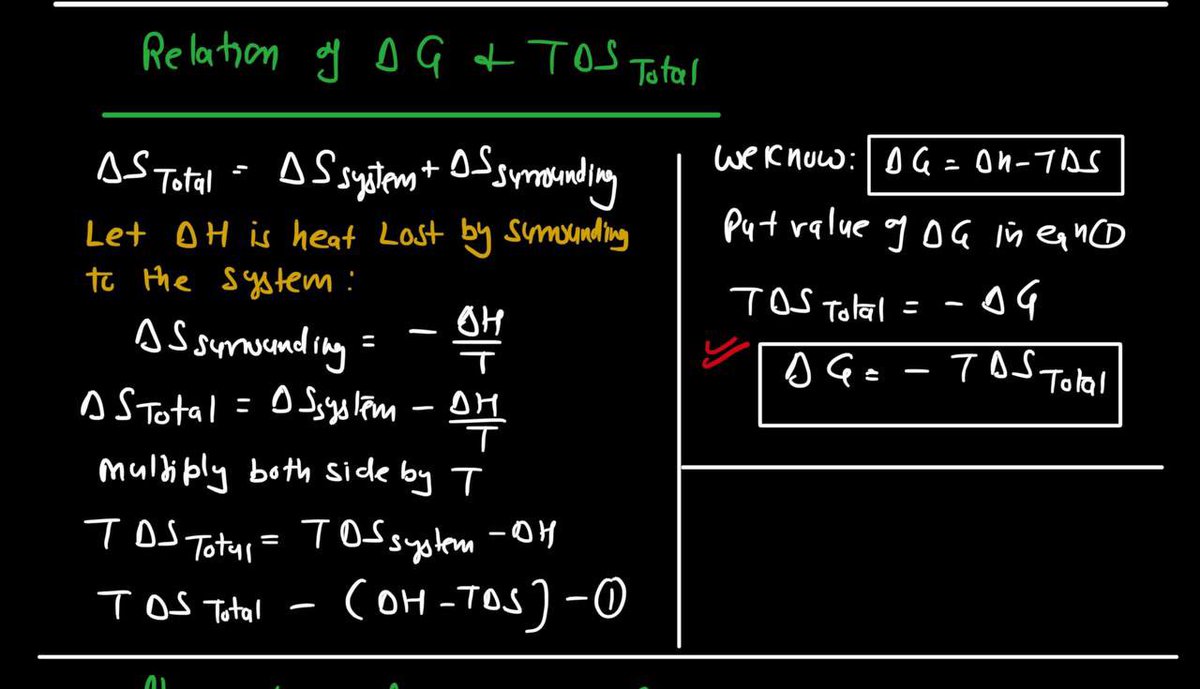 Relation of ΔG & TΔS Total
ΔS Total = ΔS system + ΔS surrounding
Let ΔH is heat Lost by surrounding
to the system :
ΔS surrounding = - ΔH/T
ΔS Total = ΔS system - ΔH/T
multiply both side by T
TΔS Total = TΔS system - ΔH
TΔS Total - (ΔH - TΔS) - ①
We Know: ΔG = ΔH - TΔS
Put value of ΔG in eqn ①
TΔS Total = - ΔG
ΔG = - TΔS Total